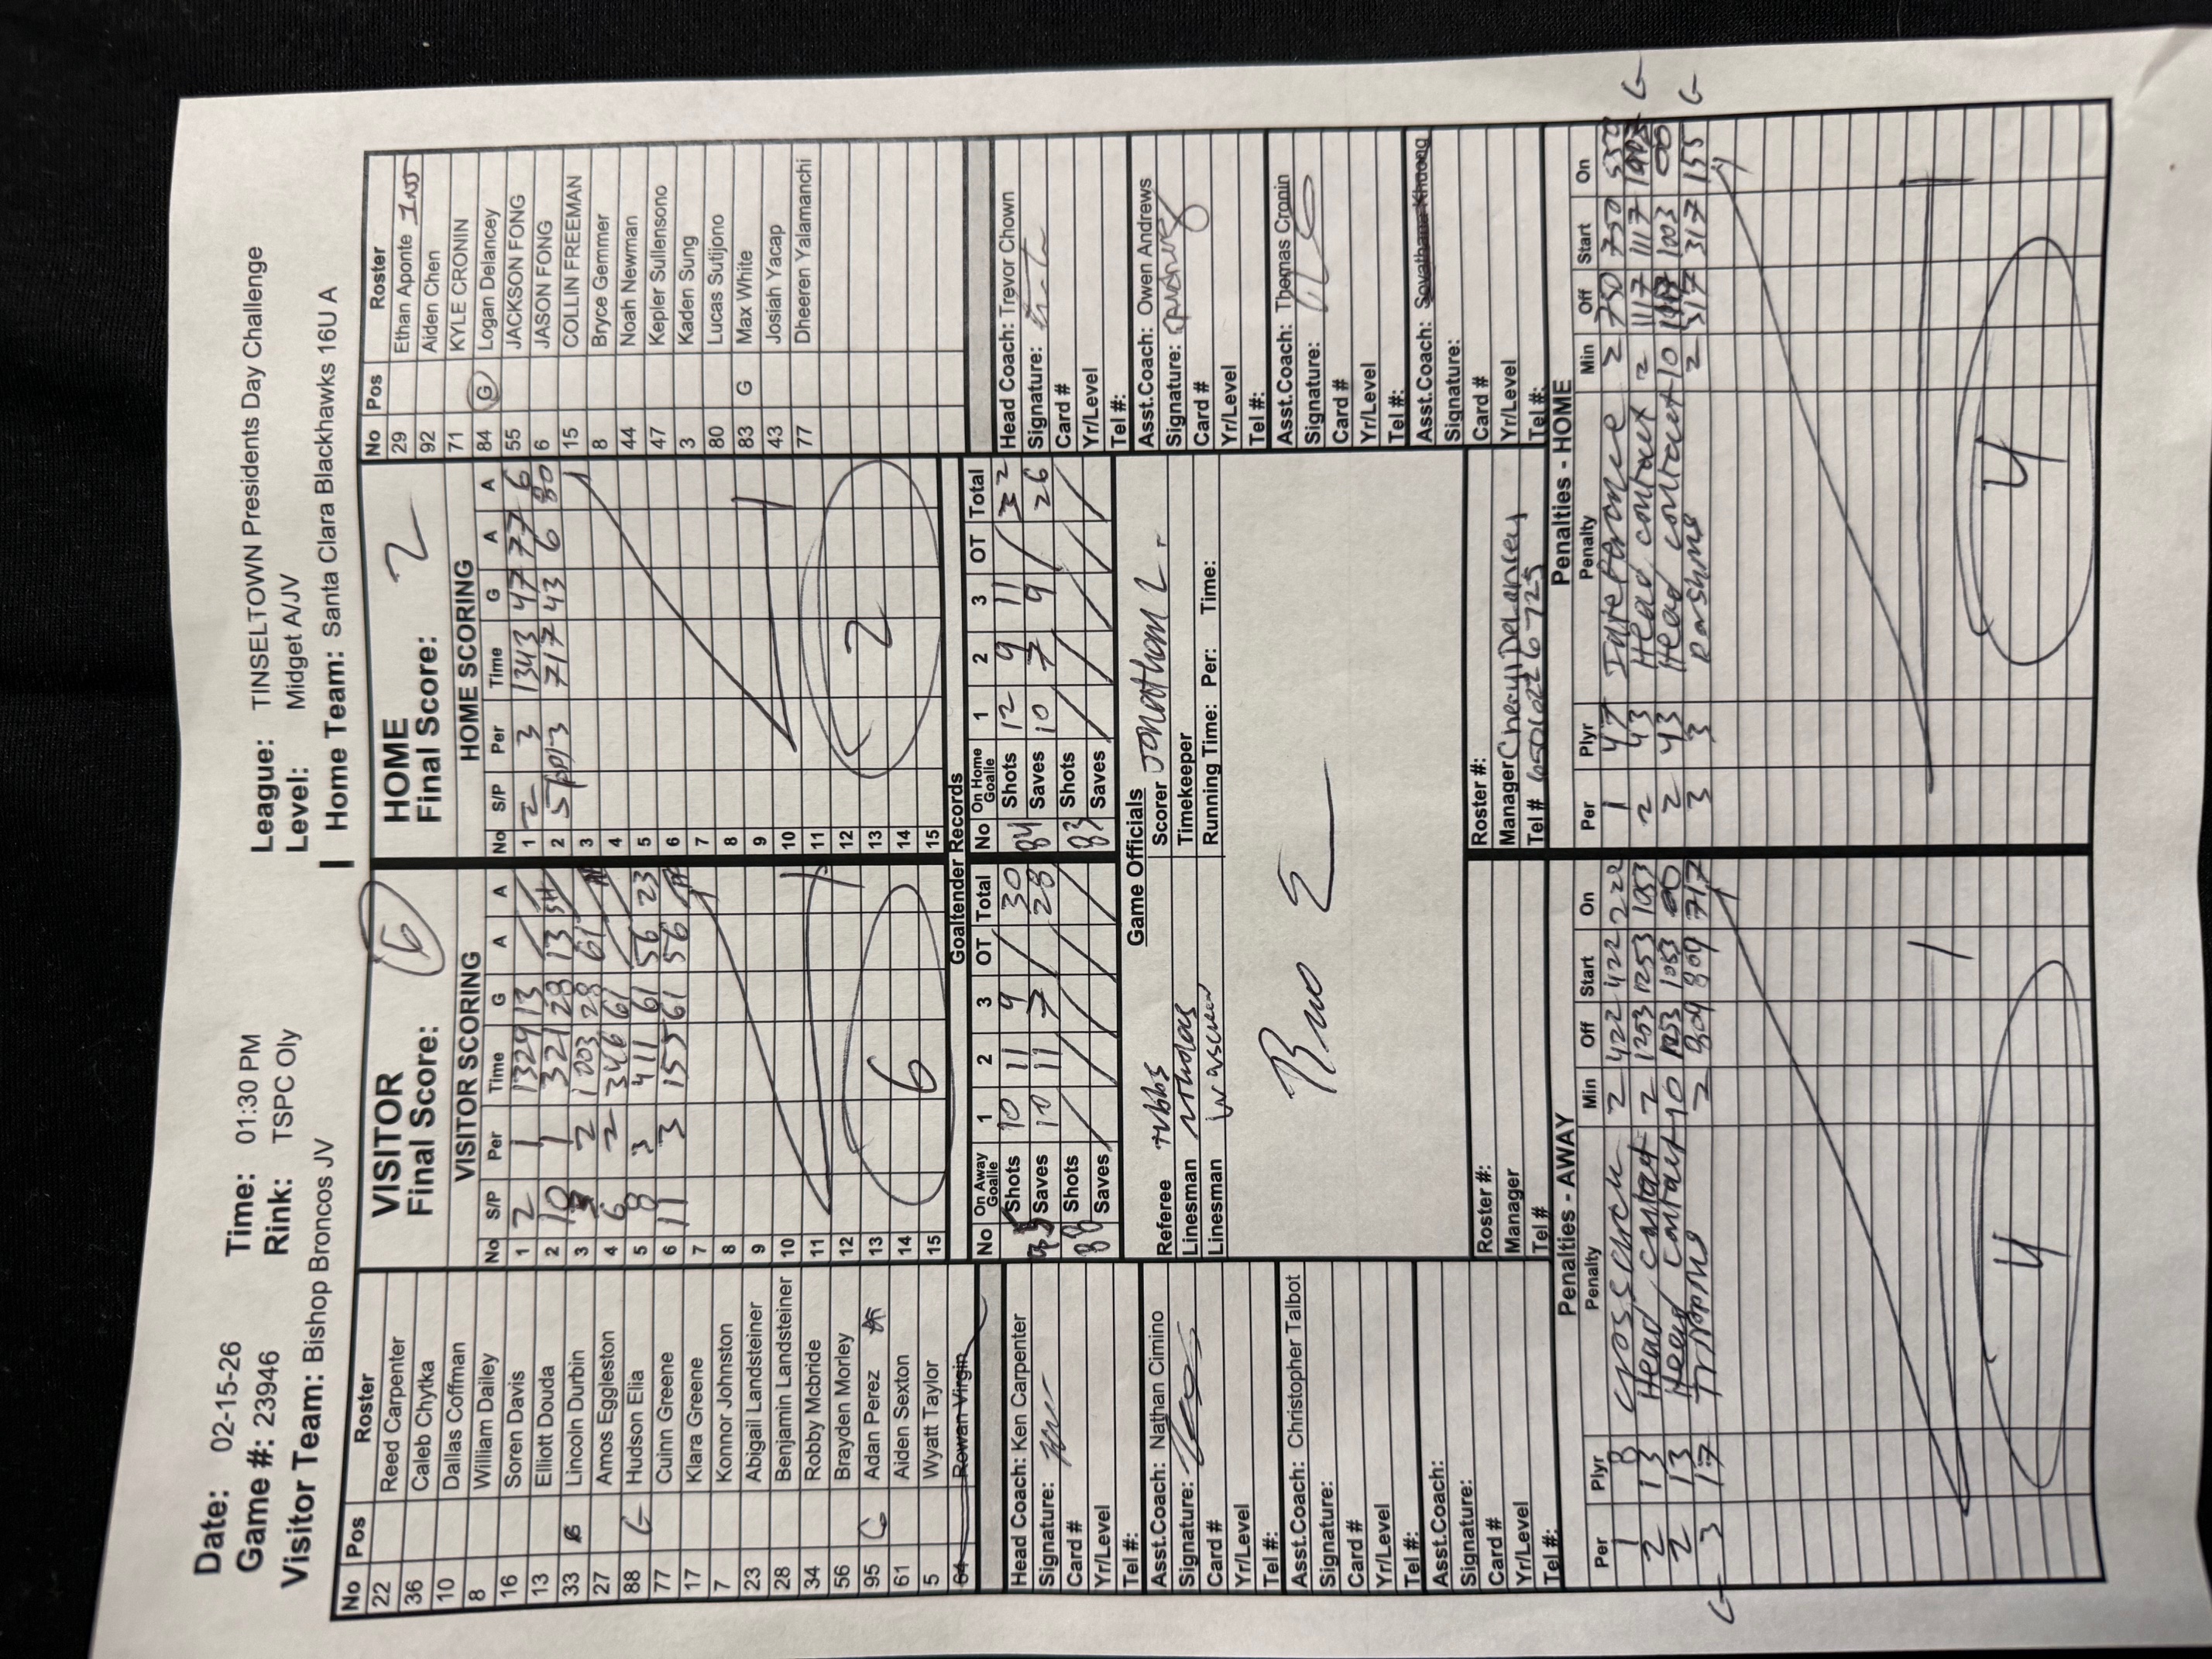 Date: 02-15-26 Time: 01:30 PM League: TINSELTOWN Presidents Day Challenge
Game #: 23946 Rink: TSPC Oly Level: Midget A/JV
Visitor Team: Bishop Broncos JV Home Team: Santa Clara Blackhawks 16U A
No Pos Roster
22 Reed Carpenter
36 Caleb Chytka
10 Dallas Coffman
8 William Dailey
16 Soren Davis
13 Elliott Douda
33 Lincoln Durbin
27 Amos Eggleston
88 G Hudson Elia
77 Cuinn Greene
17 Klara Greene
7 Konnor Johnston
23 Abigail Landsteiner
28 Benjamin Landsteiner
34 Robby Mcbride
56 Brayden Morley
95 G Adan Perez
61 Aiden Sexton
5 Wyatt Taylor
64 Rowan Virgin
VISITOR
Final Score: 6
VISITOR SCORING
No S/P Per Time G A A
1 2 1 1329 13
2 10 1 321 28 13 SH
3 2 1003 28 61
4 6 2 346 61
5 8 3 411 61 56 23
6 11 3 155 61 56
7
8
9
10
11
12
13
14
15
6
HOME
Final Score: 2
HOME SCORING
No S/P Per Time G A A
1 2 3 1343 47 77 6
2 5 3 717 43 6 80
3
4
5
6
7
8
9
10
11
12
13
14
15
2
No Pos Roster
29 Ethan Aponte
92 Aiden Chen
71 KYLE CRONIN
84 G Logan Delancey
55 JACKSON FONG
6 JASON FONG
15 COLLIN FREEMAN
8 Bryce Gemmer
44 Noah Newman
47 Kepler Sullensono
3 Kaden Sung
80 Lucas Sutijono
83 G Max White
43 Josiah Yacap
77 Dheeren Yalamanchi
Goaltender Records
No On Away Goalie 1 2 3 OT Total
95 Shots 10 11 9 / 30
Saves 10 11 7 / 28
88 Shots
Saves
No On Home Goalie 1 2 3 OT Total
84 Shots 12 9 11 / 32
Saves 10 7 9 26
83 Shots
Saves
Head Coach: Ken Carpenter
Signature:
Card #
Yr/Level
Tel #:
Asst.Coach: Nathan Cimino
Signature:
Card #
Yr/Level
Tel #:
Asst.Coach: Christopher Talbot
Signature:
Card #
Yr/Level
Tel #:
Asst.Coach:
Signature:
Card #
Yr/Level
Tel #:
Game Officials
Referee Tubbs Scorer Jonathan L.
Linesman Timekeeper
Linesman Running Time: Per: Time:
Roster #:
Manager
Tel #
Roster #:
Manager Cheryl Delancey
Tel # 6502226725
Head Coach: Trevor Chown
Signature:
Card #
Yr/Level
Tel #:
Asst.Coach: Owen Andrews
Signature:
Card #
Yr/Level
Tel #:
Asst.Coach: Thomas Cronin
Signature:
Card #
Yr/Level
Tel #:
Asst.Coach: Sovathana Khuong
Signature:
Card #
Yr/Level
Tel #:
Penalties - AWAY
Per Plyr Penalty Min Off Start On
1 8 Cross check 2 422 422 222
2 13 Head contact 2 1253 1253 1053
2 13 Head contact 10 1253 1053
G 3 17 Tripping 2 809 809 717
4
Penalties - HOME
Per Plyr Penalty Min Off Start On
1 47 Interference 2 750 750 550
2 43 Head contact 2 1117 1117 1003 G
2 43 Head contact 10 1117 1003
3 3 Roughing 2 317 317 155 G
4